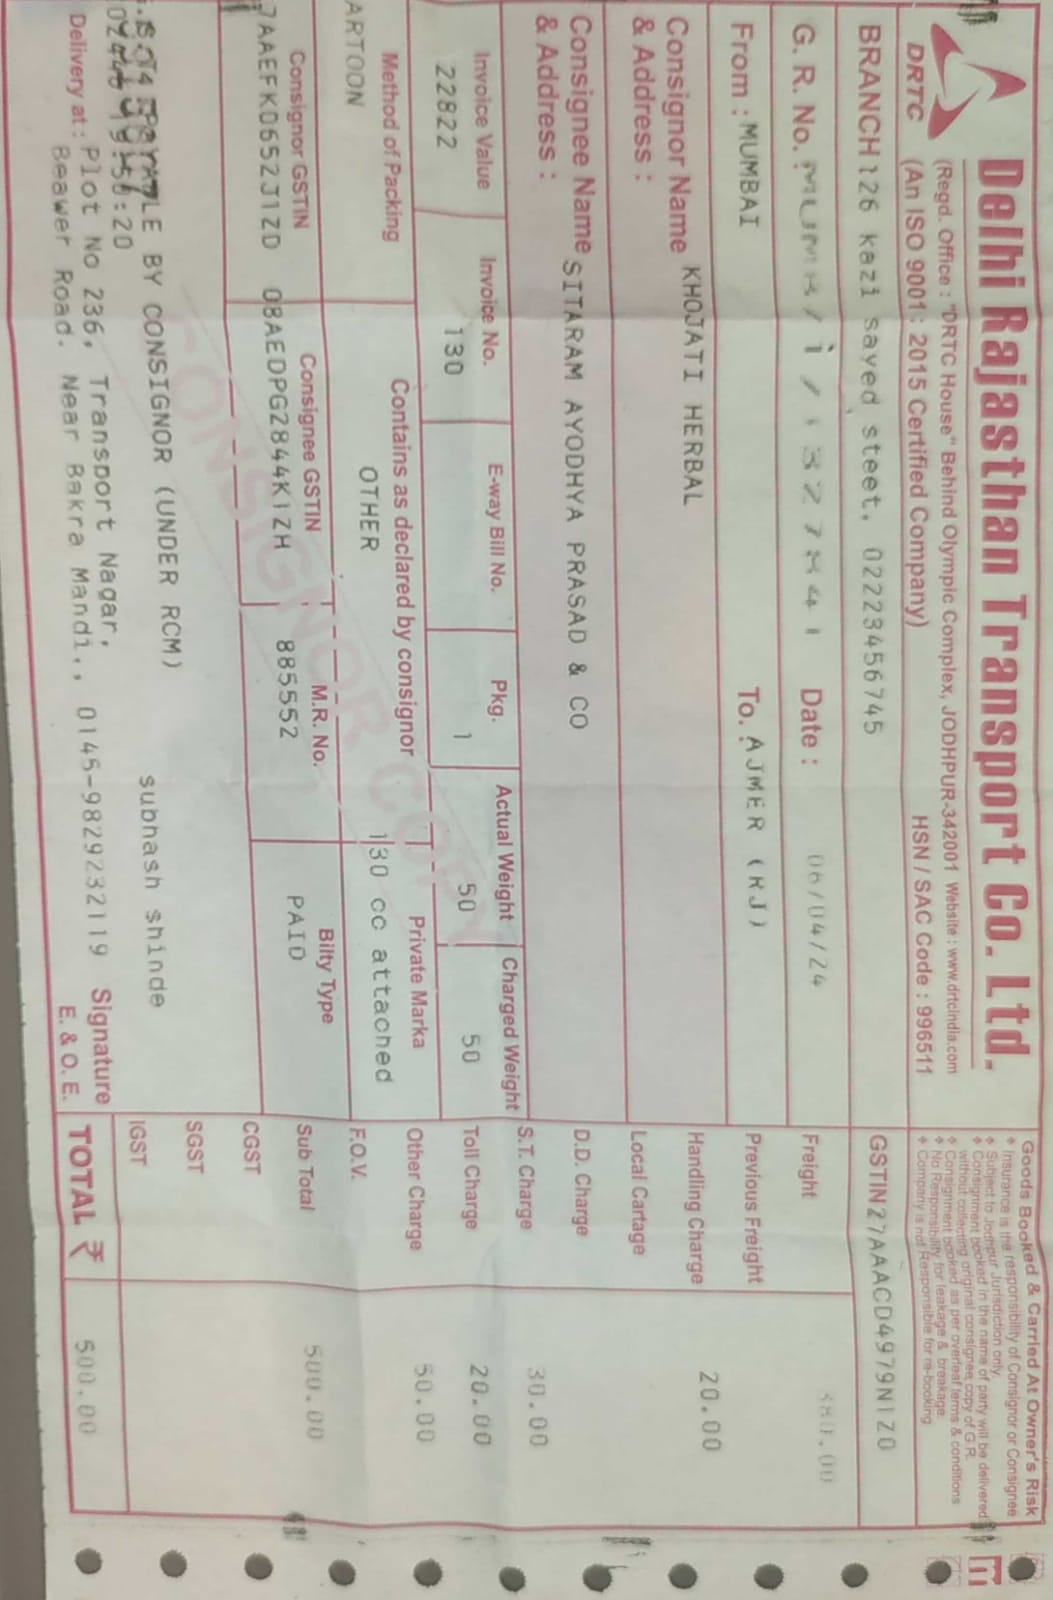 Delhi Rajasthan Transport Co. Ltd.
(Regd. Office : "DRTC House" Behind Olympic Complex, JODHPUR-342001 Website : www.drtcindia.com
DRTC (An ISO 9001 : 2015 Certified Company) HSN / SAC Code : 996511
Goods Booked & Carried At Owner's Risk
Insurance is the responsibility of Consignor or Consignee
Subject to Jodhpur Jurisdiction only.
Consignment booked in the name of party will be delivered
without collecting original consignee copy of G.R.
Consignment booked as per overleaf terms & conditions
No Responsibility for leakage & breakage.
Company is not Responsible for re-booking
BRANCH 126 kazi sayed steet, 02223456745 GSTIN27AAACD4979N1Z0
G. R. No. : Date : 06/04/24 Freight
From : MUMBAI To. : AJMER (RJ) Previous Freight
Consignor Name KHOJATI HERBAL Handling Charge 20.00
& Address : Local Cartage
Consignee Name SITARAM AYODHYA PRASAD & CO D.D. Charge
& Address : S.T. Charge 30.00
Invoice Value Invoice No. E-way Bill No. Pkg. Actual Weight Charged Weight Toll Charge 20.00
22822 130 1 50 50
Method of Packing Contains as declared by consignor Private Marka Other Charge 50.00
ARTOON OTHER 130 cc attached F.O.V.
Consignor GSTIN Consignee GSTIN M.R. No. Bilty Type Sub Total 500.00
7AAEFK0652J1ZD 08AEDPG2844K1ZH 885552 PAID
CGST
SGST
BY CONSIGNOR (UNDER RCM) subhash shinde IGST
Delivery at : Plot No 236, Transport Nagar, Signature TOTAL ₹ 500.00
Beawer Road. Near Bakra Mandi., 0145-9829232119 E. & O. E.
CONSIGNOR COPY